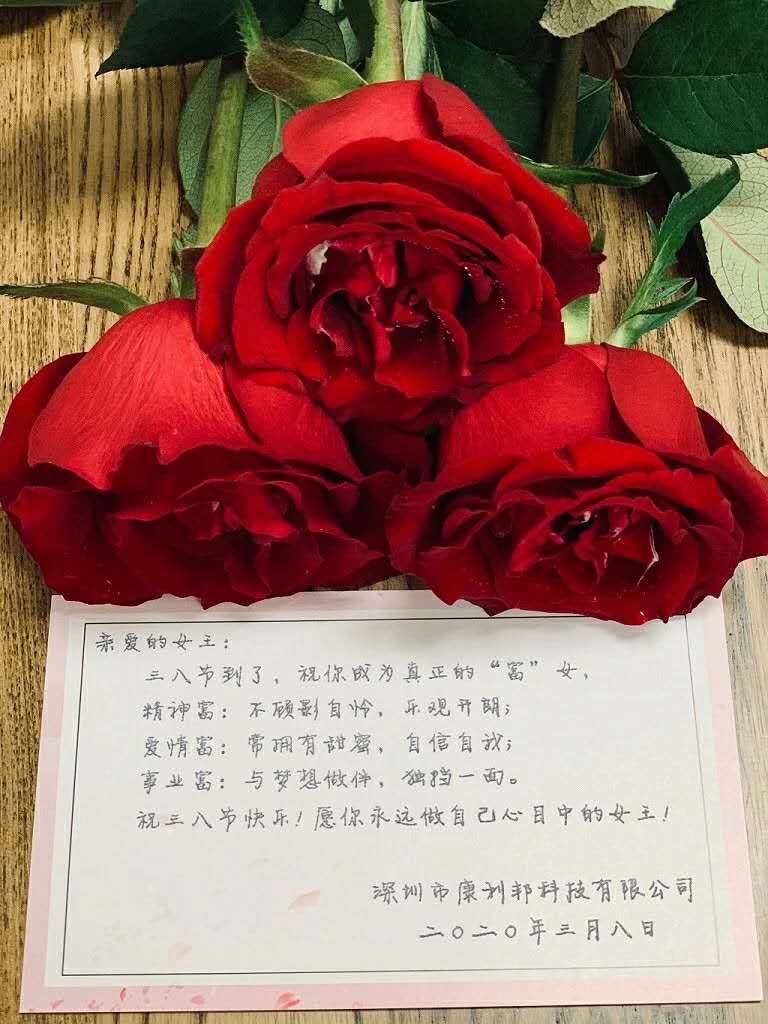 亲爱的女王：
三八节到了，祝你成为真正的“富”女，
精神富：不顾影自怜，乐观开朗；
爱情富：常拥有甜蜜，自信自我；
事业富：与梦想做伴，独挡一面。
祝三八节快乐！愿你永远做自己心目中的女王！
深圳市康利邦科技有限公司
二〇二〇年三月八日